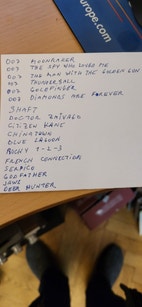 europe.com
007 MOONRAKER
007 THE SPY WHO LOVED ME
007 THE MAN WITH THE GOLDEN GUN
007 THUNDERBALL
007 GOLDFINGER
007 DIAMONDS ARE FOREVER
SHAFT
DOCTOR ZHIVAGO
CITIZEN KANE
CHINATOWN
BLUE LAGOON
ROCKY 1-2-3
FRENCH CONNECTION
SERPICO
GODFATHER
JAWS
DEER HUNTER